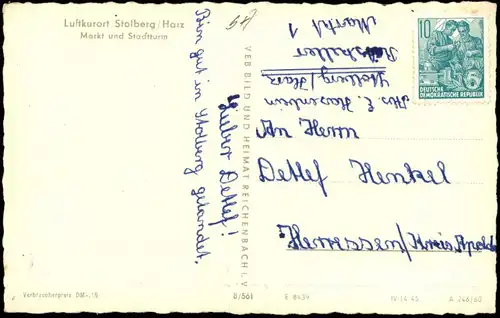 Luftkurort Stolberg/Harz
Markt und Stadtturm
Lieber Detlef!
Bin gut in Stolberg gelandet.
VEB BILD UND HEIMAT REICHENBACH I. V.
Stolberg/Harz
Markt 1
10
DEUTSCHE
DEMOKRATISCHE REPUBLIK
An Herrn
Detlef Henkel
Herressen/Kreis Apolda
Verbraucherpreis DM -,15
B/561
E 8439
IV-14-45
A 246/60